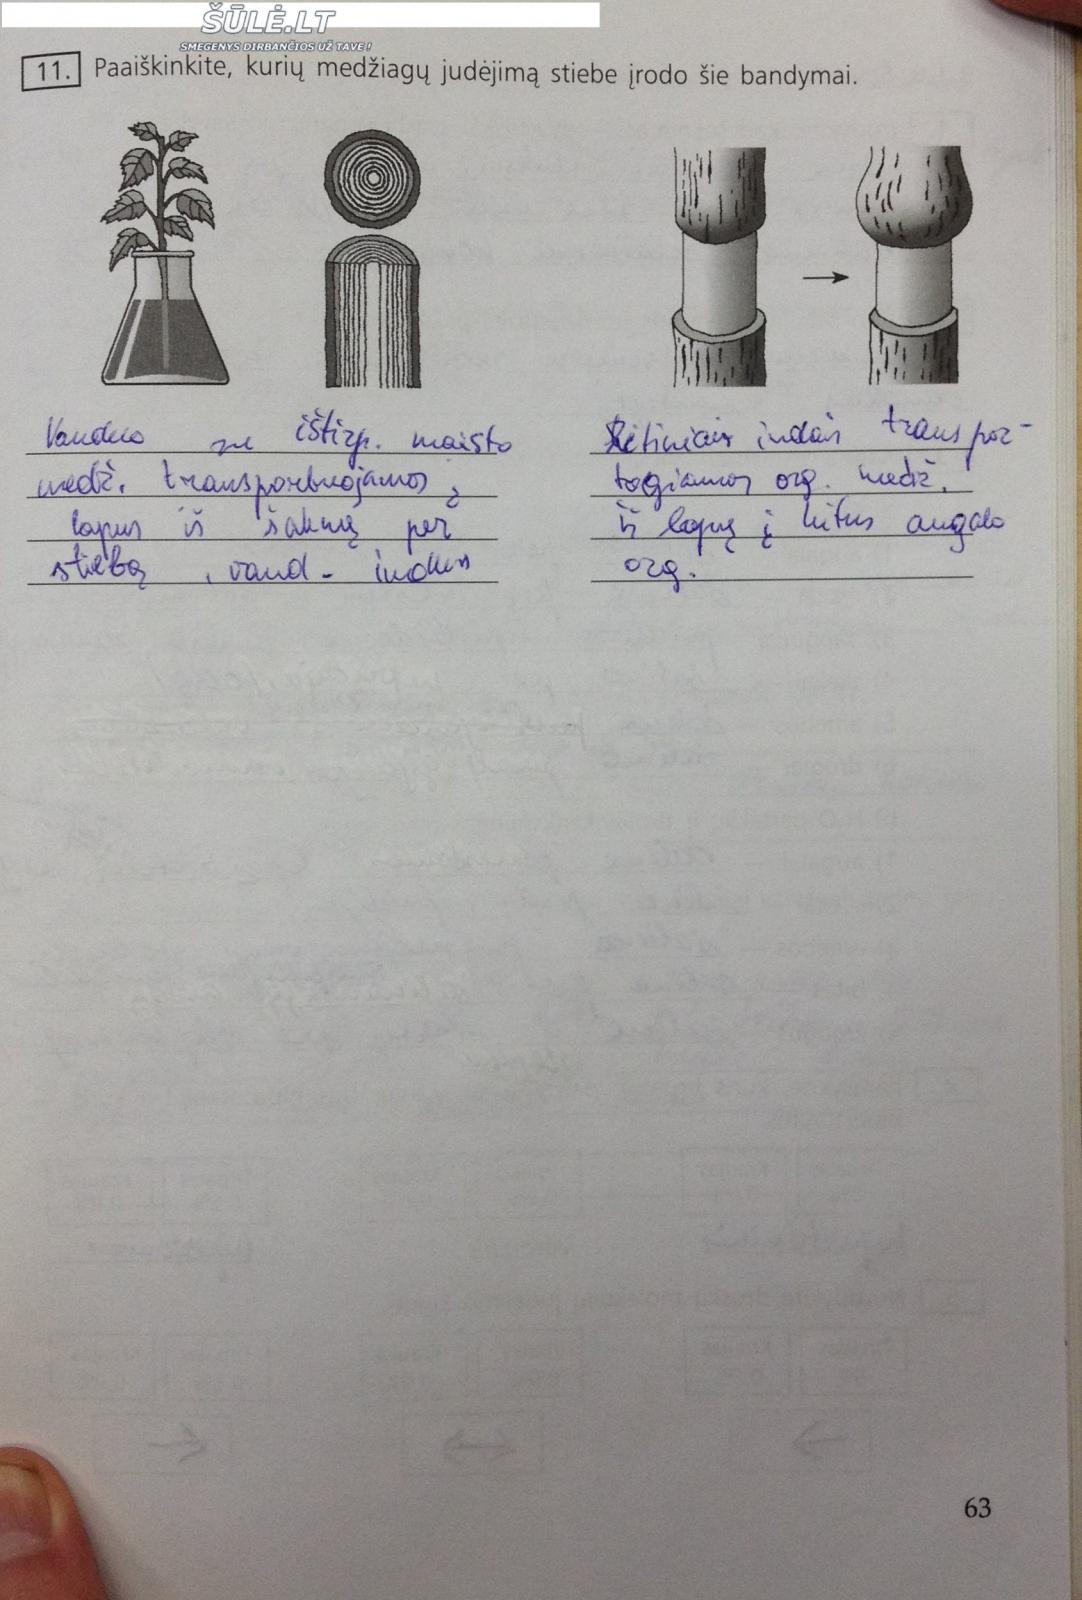 ŠŪLĖ.LT
SMEGENYS DIRBANČIOS UŽ TAVE!
11. Paaiškinkite, kurių medžiagų judėjimą stiebe įrodo šie bandymai.
Vanduo su ištirp. maisto
medž. transportuojamos į
lapus iš šaknų per
stiebą, vand. indus
Rėtiniais indais transpor-
tuojamos org. medž.
iš lapų į kitus augalo
org.
63